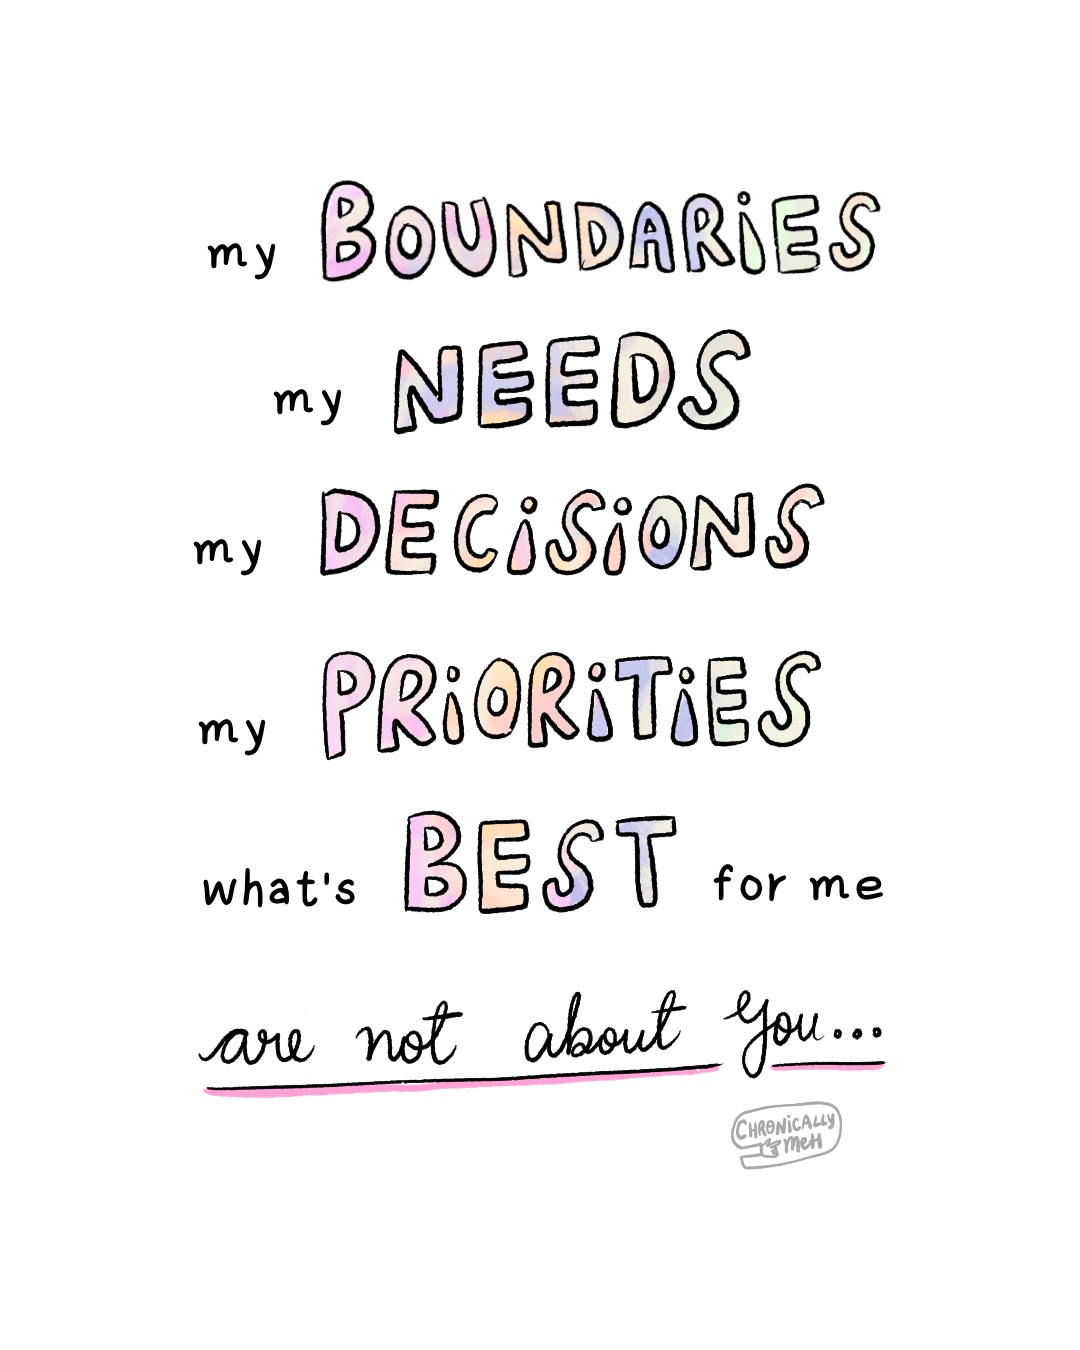 my BOUNDARiES
my NEEDS
my DECiSiONS
my PRiORiTiES
what's BEST for me
are not about you...
CHRONiCALLY
MeH